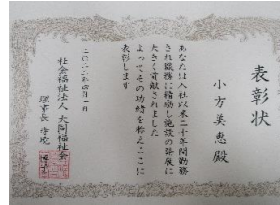 表彰状
小方英恵殿
あなたは入社以来二十年間勤務
され職務に精励し施設の発展に
大きく貢献されました
よってその功績を称えここに
表彰します
二〇二二年四月一日
社会福祉法人 大阿福祉会
理事長